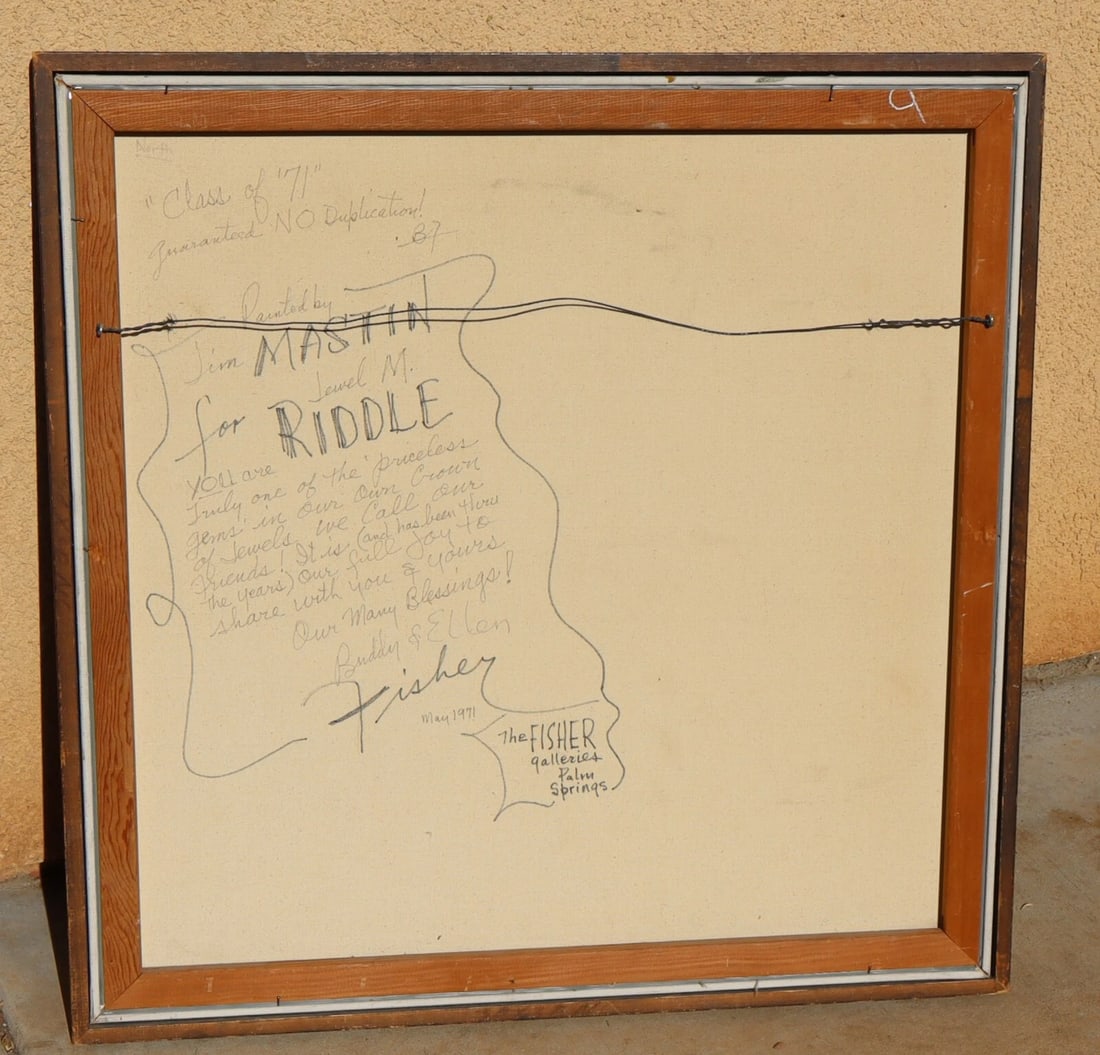 9
North
"Class of '71"
Guaranteed NO Duplication!
B7
Painted by
Jim MASTIN
Jewel M.
for RIDDLE
YOU are
Truly one of the 'priceless
gems' in our own Crown
of Jewels we Call our
Friends! It is (and has been thru
the years) Our full Joy to
share with you & yours
Our Many Blessings!
Buddy & Ellen
Fisher
May 1971
The FISHER
galleries
Palm
Springs